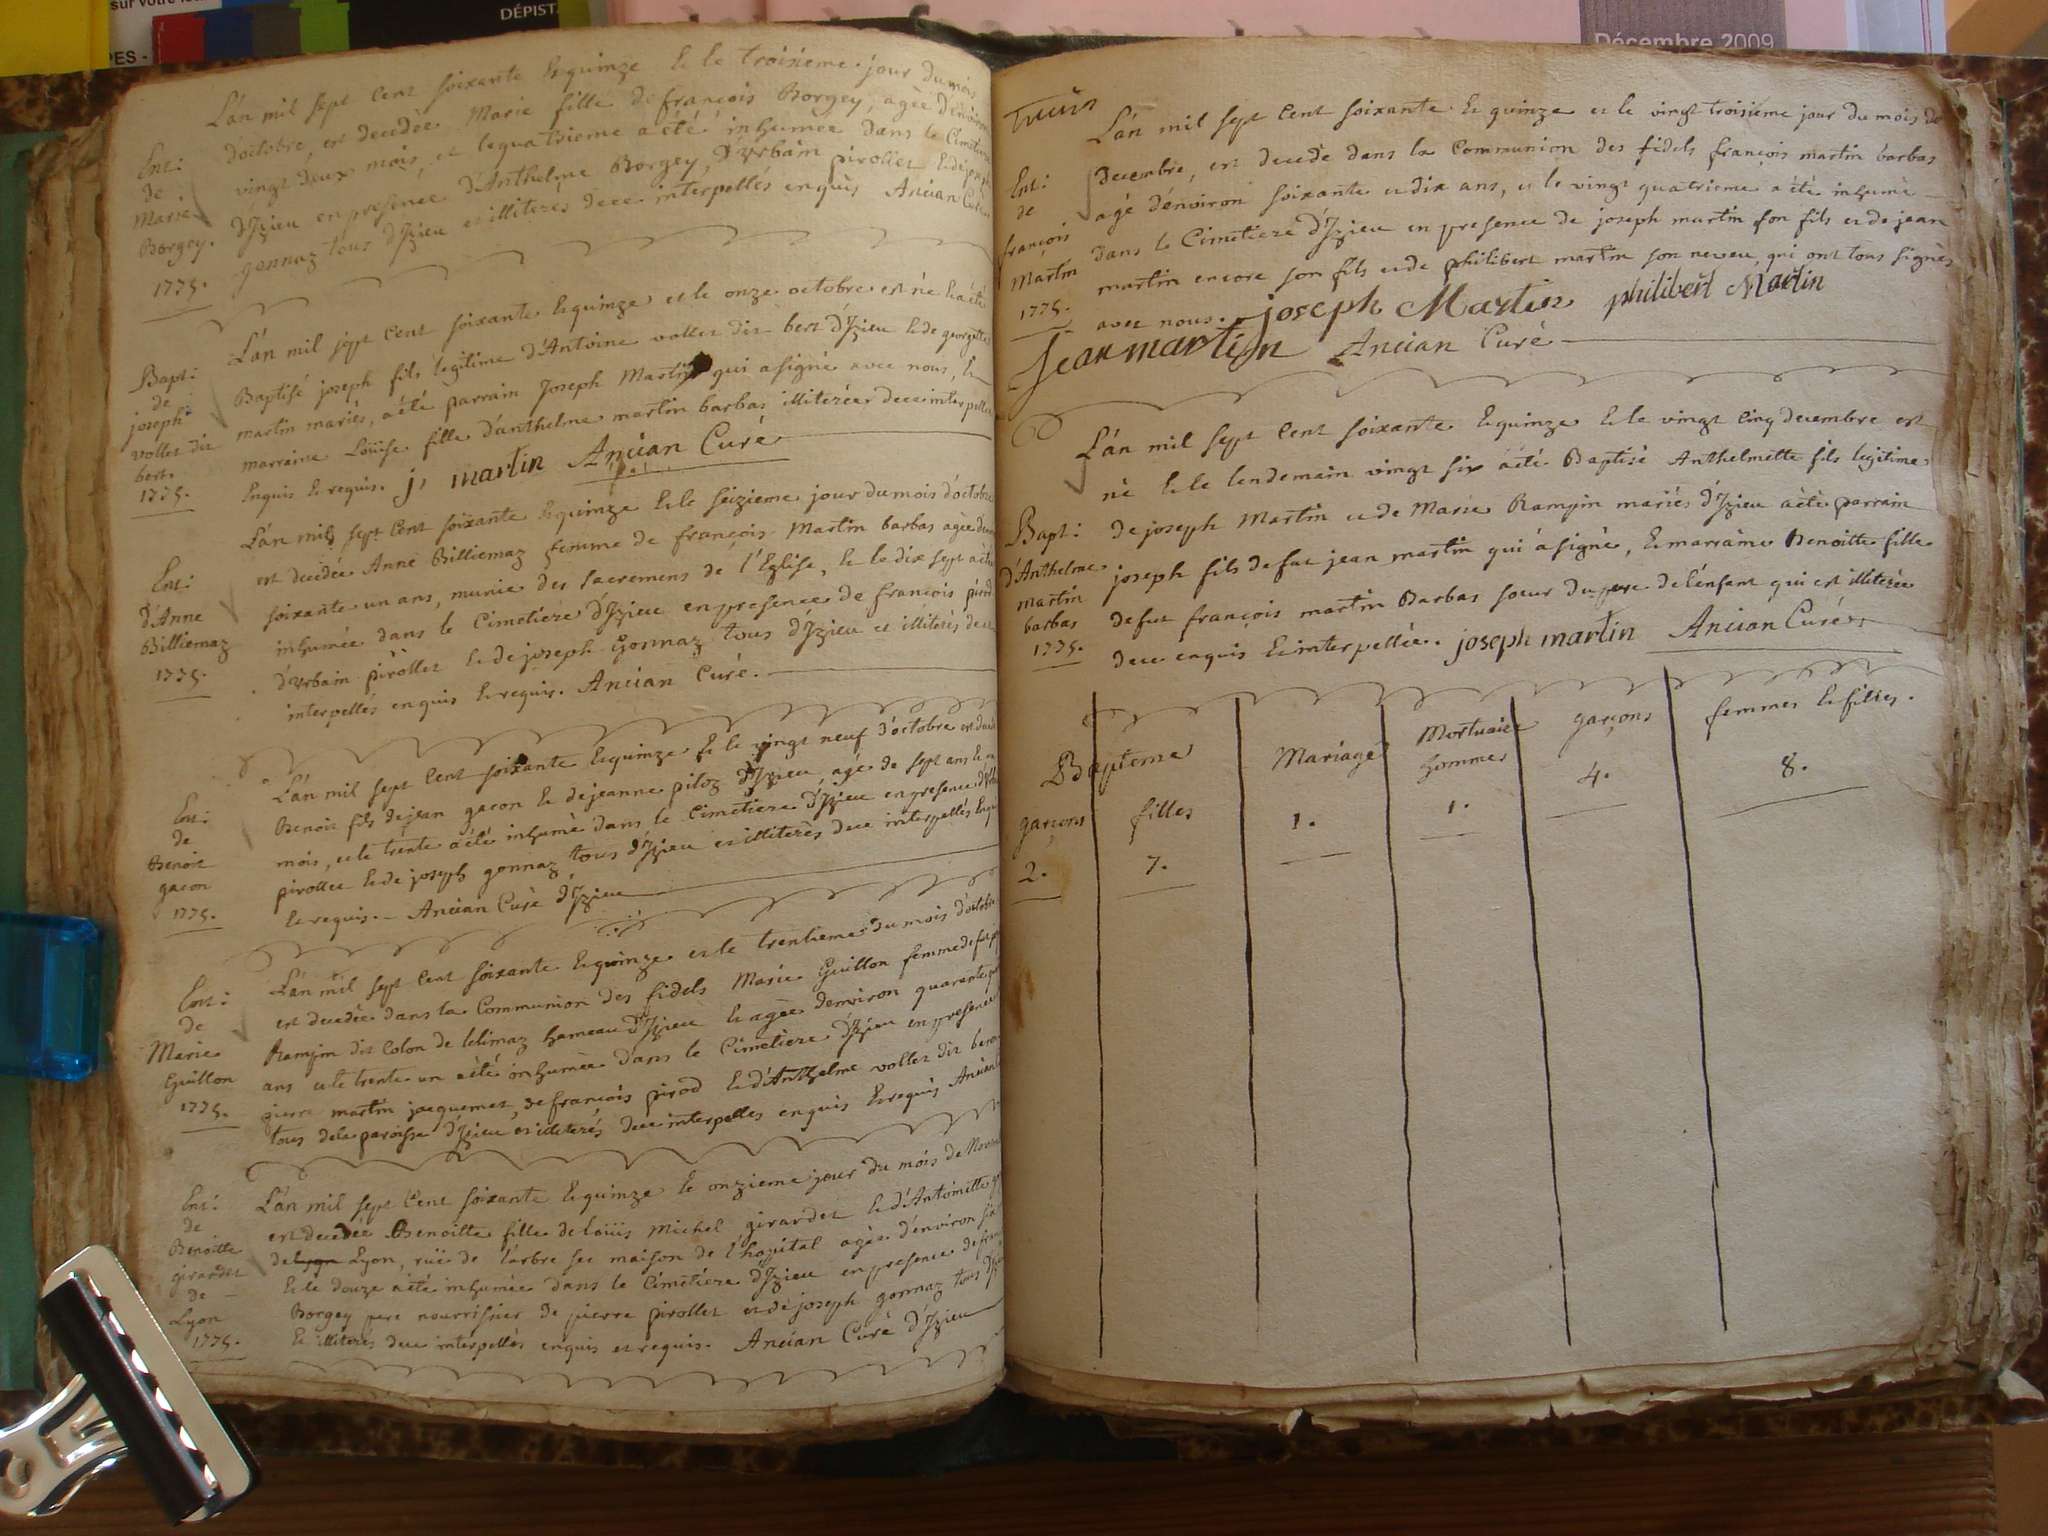 sur votre
PES -
DÉPIST
Décembre 2009
L'an mil sept cent soixante & quinze & le troisieme jour du mois
Ent: d'octobre, est decedée Marie fille de françois Borgey, agée d'environ
de vingt deux mois, et le quatrieme a été inhumée dans le Cimetiere
Marie d'Izieu en presence d'Anthelme Borgey, d'urbain pirollet & de joseph
Borgey. gonnaz tous d'Izieu et illiterés de ce interpellés enquis Ancian Curé
1775.
L'an mil sept cent soixante & quinze et le onze octobre est né & a été
Bapt: Baptisé joseph fils legitime d'Antoine vollet dit bert d'Izieu & de georgette
de martin mariés, a été parrain Joseph Martin qui a signé avec nous, &
joseph marraine Loüise fille d'anthelme martin barbas illiterée de ce interpellée
vollet dit enquis & requis. j, martin Ancian Curé
bert.
1775.
L'an mil sept cent soixante & quinze & le seizieme jour du mois d'octobre
Ent: est decedée Anne Billiemaz femme de françois Martin barbas agée
d'Anne soixante un ans, munie des sacremens de l'Eglise, & le dix sept a été
Billiemaz inhumée dans le Cimetiere d'Izieu en presence de françois pirod
1775. d'urbain pirollet & de joseph Gonnaz tous d'Izieu et illiterés de ce
interpellés enquis & requis. Ancian Curé.
L'an mil sept cent soixante & quinze & le vingt neuf d'octobre est decedé
Ent: Benoit fils de jean gacon & de jeanne pitoz d'Izieu, agé de sept ans &
de mois, et le trente a été inhumé dans le Cimetiere d'Izieu en presence
Benoit pirollet & de joseph gonnaz tous d'Izieu et illiterés de ce interpellés enquis
gacon & requis. - Ancian Curé d'Izieu
1775.
L'an mil sept cent soixante & quinze et le trentieme du mois d'octobre
Ent: est decedée dans la Communion des fidels Marie Guillon femme de feu
de Ramjin dit Colon de lelimaz hameau d'Izieu & agée d'environ quarante
Marie ans et le trente un a été inhumée dans le Cimetiere d'Izieu en presence
Guillon pierre martin jacquemet, de françois pirod & d'Anthelme vollet dit bert
1775. tous de la paroisse d'Izieu et illiterés de ce interpellés enquis & requis Ancian
L'an mil sept cent soixante & quinze le onzieme jour du mois de Novembre
Ent: est decedée Benoitte fille de Loüis Michel girardet & d'Antoinette
de de Lyon, rüe de l'arbre sec maison de l'hopital agée d'environ
Benoitte & le douze a été inhumée dans le Cimetiere d'Izieu en presence de françois
girardet Borgey pere nourrissier de pierre pirollet et de joseph gonnaz tous d'Izieu
de & illiterés de ce interpellés enquis et requis. Ancian Curé d'Izieu
Lyon
1775.
L'an mil sept cent soixante & quinze et le vingt troisieme jour du mois de
Ent: decembre, est decedé dans la Communion des fidels françois martin barbas
de agé d'environ soixante et dix ans, et le vingt quatrieme a été inhumé
françois dans le Cimetiere d'Izieu en presence de joseph martin son fils et de jean
Martin martin encore son fils et de philibert martin son neveu qui ont tous signés
1775. avec nous. joseph Martin philibert Martin
Jean martin Ancian Curé
L'an mil sept cent soixante & quinze & le vingt cinq decembre est
né & le lendemain vingt six a été Baptisé Anthelmette fils legitime
Bapt: de joseph Martin et de Marie Ramjin mariés d'Izieu a été parrain
d'Anthelme joseph fils de feu jean martin qui a signé, & marraine Benoitte fille
martin de feu françois martin Barbas soeur du pere de l'enfant qui est illiterée
barbas de ce enquis & interpellée. joseph martin Ancian Curé
1775.
Bapteme Mariage Mortuaire hommes garçons femmes & filles.
garçons filles 1. 1. 4. 8.
2. 7.